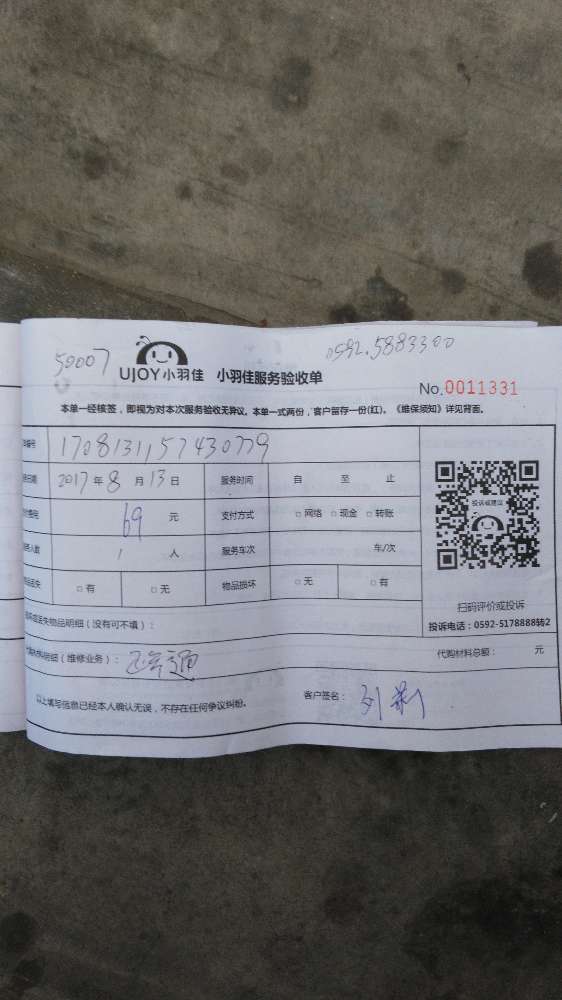 50007
0592.5883300
UJOY小羽佳 小羽佳服务验收单
No.0011331
本单一经核签，即视为对本次服务验收无异议。本单一式两份，客户留存一份(红)。《维保须知》详见背面。
编号 1708131157430779
日期 2017年8月13日 服务时间 自 至 止
费用 69 元 支付方式 □网络 □现金 □转账
人数 1 人 服务车次 车/次
丢失 □有 □无 物品损坏 □无 □有
投诉或建议
扫码评价或投诉
投诉电话：0592-5178888转2
丢失物品明细（没有可不填）：
明细（维修业务）： 通
代购材料总额： 元
以上填写信息已经本人确认无误，不存在任何争议纠纷。
客户签名： 刘